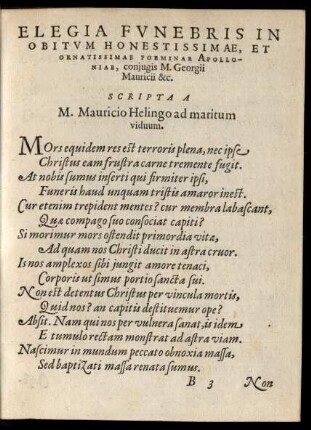 ELEGIA FVNEBRIS IN
OBITVM HONESTISSIMAE, ET
ORNATISSIMAE FOEMINAE APOLLO-
NIAE, conjugis M. Georgii
Mauricii &c.
SCRIPTA A
M. Mauricio Helingo ad maritum
viduum.
MOrs equidem res est terroris plena, nec ipse
Christus eam frustra carne tremente fugit.
At nobis sumus inserti qui firmiter ipsi,
Funeris haud unquam tristis amaror inest.
Cur etenim trepident mentes? cur membra labascant,
Quæ compago suo consociat capiti?
Si morimur mors ostendit primordia vitæ,
Ad quam nos Christi ducit in astra cruor.
Is nos amplexos sibi jungit amore tenaci,
Corporis ut simus portio sancta sui.
Non est detentus Christus per vincula mortis,
Quid nos? an capitis destituemur ope?
Absit. Nam qui nos per vulnera sanat, is idem
E tumulo rectam monstrat ad astra viam.
Nascimur in mundum peccato obnoxia massa,
Sed baptizati massa renata sumus.
B 3 Non